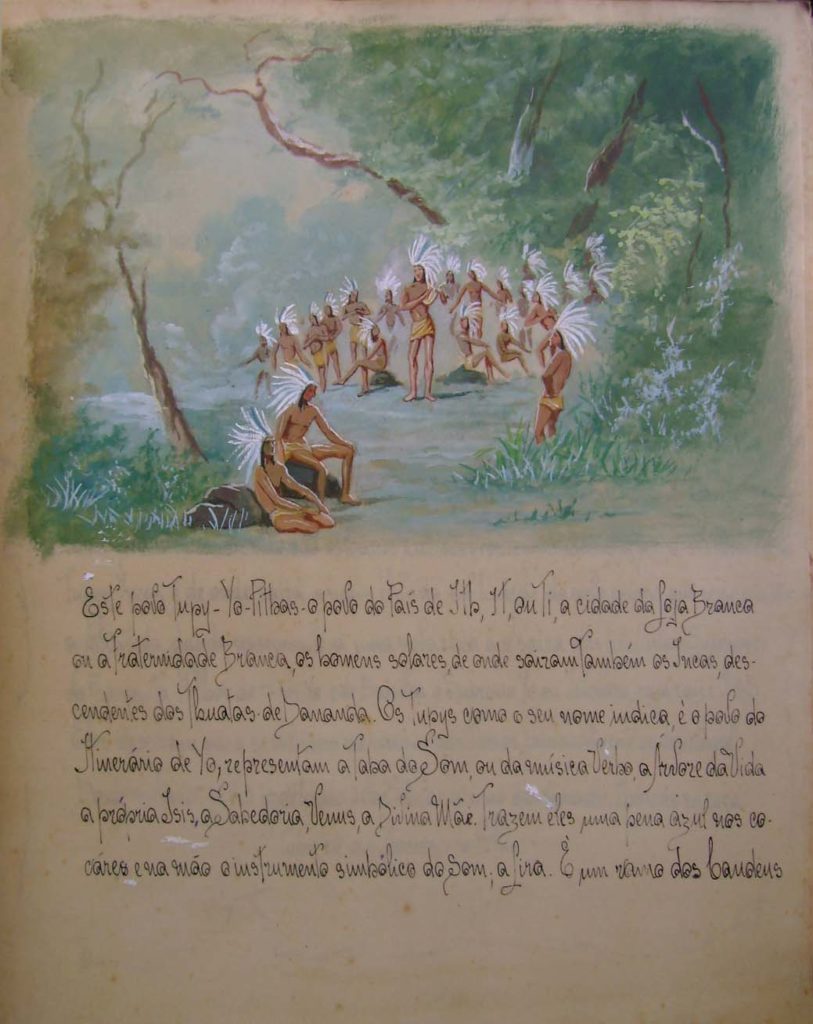 Este povo Tupy-Yo-Pithas-o povo do País de Ith, IT, ou Ti, a cidade da Loja Branca
ou a Fraternidade Branca, os homens solares, de onde sairam também os Incas, des-
cendentes dos de Dananda. Os Tupys como o seu nome indica, é o povo do
Itinerário de Yo, representam a Taba do Som, ou da música Verbo, a Árvore da Vida
a própria Isis, a Sabedoria, Venus, a Divina Mãe. Trazem eles uma pena azul nos co-
cares e na mão o instrumento simbólico do Som, a Lira. È um ramo dos